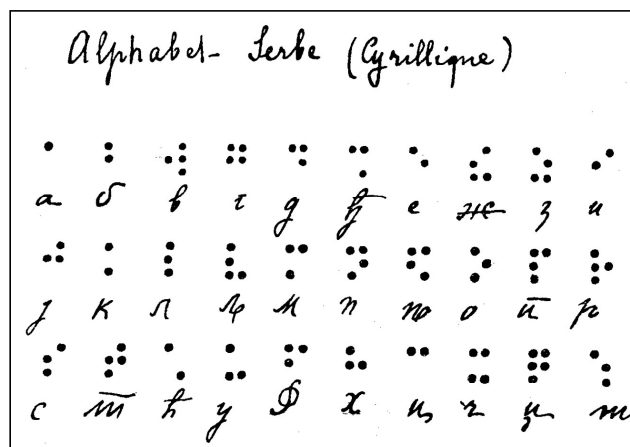 Alphabet- Serbe (Cyrillique)
а б в г д ђ е ж з и
ј к л љ м н њ о п р
с т ћ у ф х ц ч џ ш